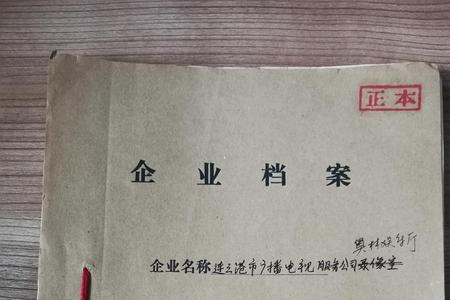 正本
企业档案
奥林娱乐厅
企业名称 连云港市广播电视服务公司录像室